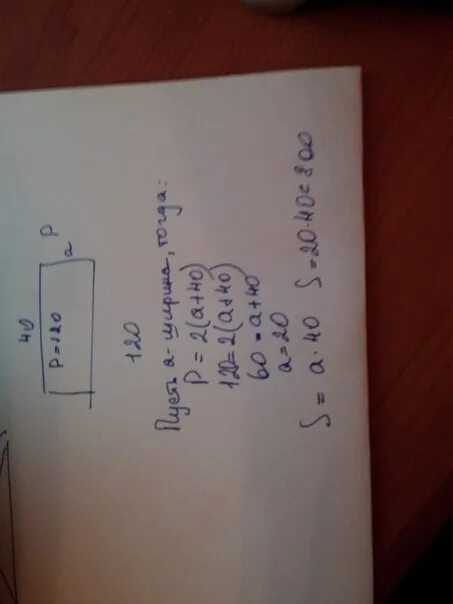 40
P=120
a P
120
Пусть a - ширина, тогда:
P = 2(a+40)
120=2(a+40)
60=a+40
a=20
S = a·40 S=20·40=800